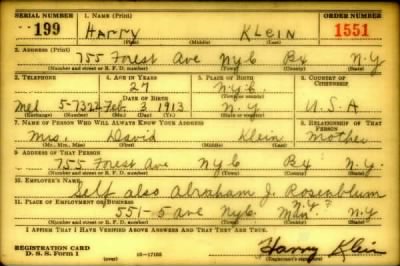 SERIAL NUMBER 1. NAME (Print) ORDER NUMBER
199 Harry Klein 1551
(First) (Middle) (Last)
2. ADDRESS (Print)
755 Forest Ave NyC Bx N.Y
(Number and street or R. F. D. number) (Town) (County) (State)
3. TELEPHONE 4. AGE IN YEARS 5. PLACE OF BIRTH 6. COUNTRY OF CITIZENSHIP
27 N.Y.C.
DATE OF BIRTH
Mel 5-7322 Feb 3 1913 N.Y U.S.A
(Exchange) (Number) (Mo.) (Day) (Yr.) (State or country)
7. NAME OF PERSON WHO WILL ALWAYS KNOW YOUR ADDRESS 8. RELATIONSHIP OF THAT PERSON
Mrs. David Klein Mother
(Mr., Mrs., Miss) (First) (Middle) (Last)
9. ADDRESS OF THAT PERSON
755 Forest Ave NyC Bx N.Y.
(Number and street or R. F. D. number) (Town) (County) (State)
10. EMPLOYER'S NAME
Self also Abraham J. Rosenblum
11. PLACE OF EMPLOYMENT OR BUSINESS
551-5 Ave NyC N.Y.
(Number and street or R. F. D. number) (Town) (County) (State)
I AFFIRM THAT I HAVE VERIFIED ABOVE ANSWERS AND THAT THEY ARE TRUE.
REGISTRATION CARD
D. S. S. Form 1 Harry Klein
(Registrant's signature)